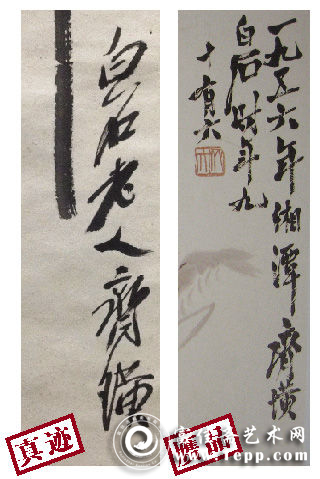 白石老人齊璜
一九五六年湘潭齊璜
白石时年九
十有六
真迹
赝品
艺术网